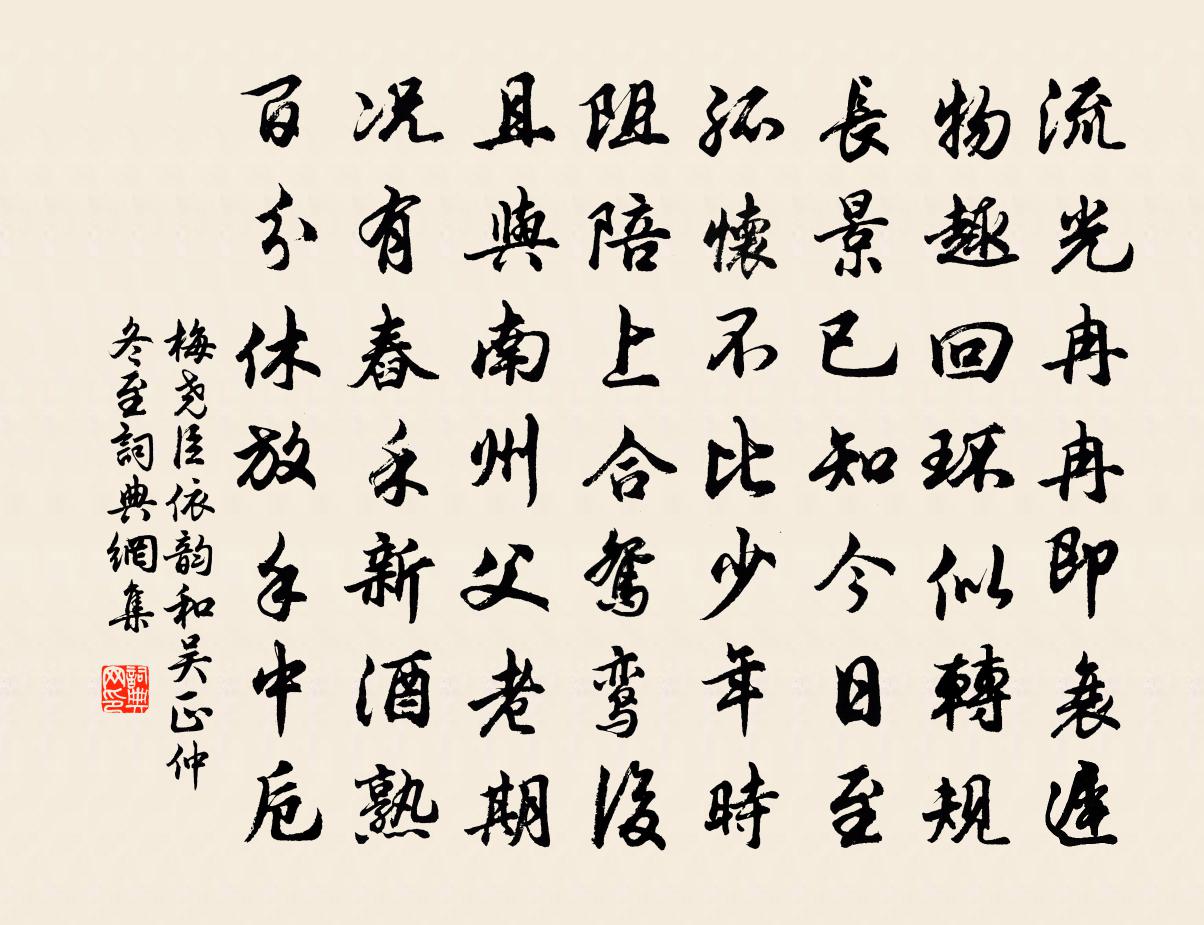 流光冉冉即衰遲
物趣回环似轉規
長景已知今日至
孤懷不比少年時
阻陪上合鴛鸾後
且與南州父老期
况有舂禾新酒熟
百分休放手中卮
梅尧臣依韵和吴正仲
冬至詞典網集
詞典
网印